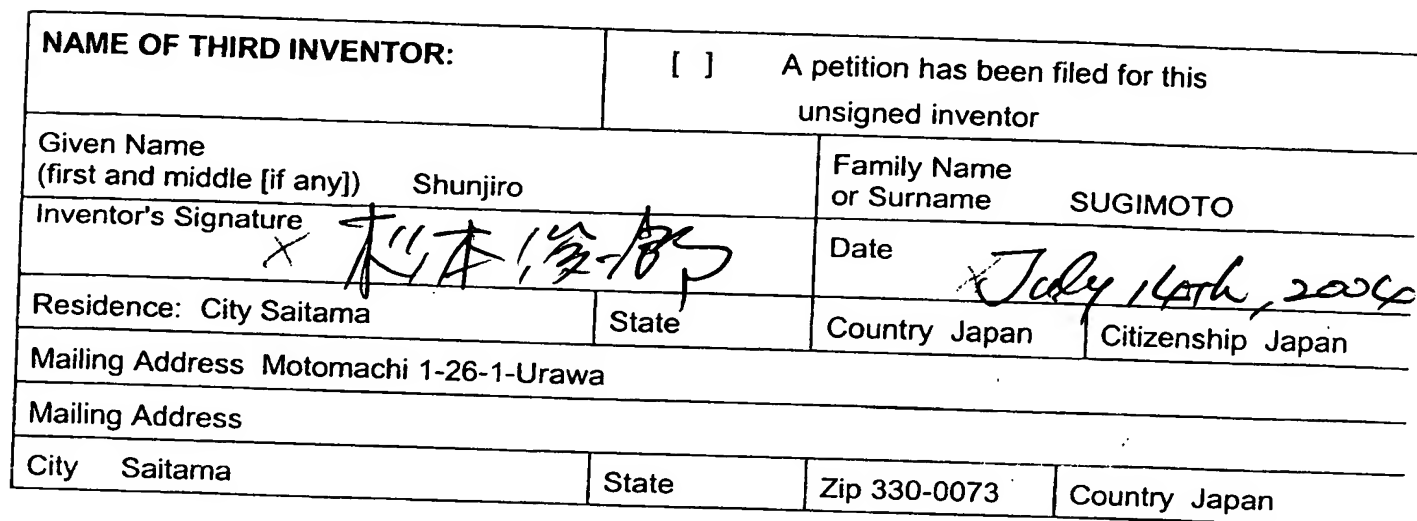 NAME OF THIRD INVENTOR: [ ] A petition has been filed for this
unsigned inventor
Given Name
(first and middle [if any]) Shunjiro
Family Name
or Surname SUGIMOTO
Inventor's Signature × 杉本俊一郎
Date × July 14th, 2004
Residence: City Saitama State Country Japan Citizenship Japan
Mailing Address Motomachi 1-26-1-Urawa
Mailing Address
City Saitama State Zip 330-0073 Country Japan